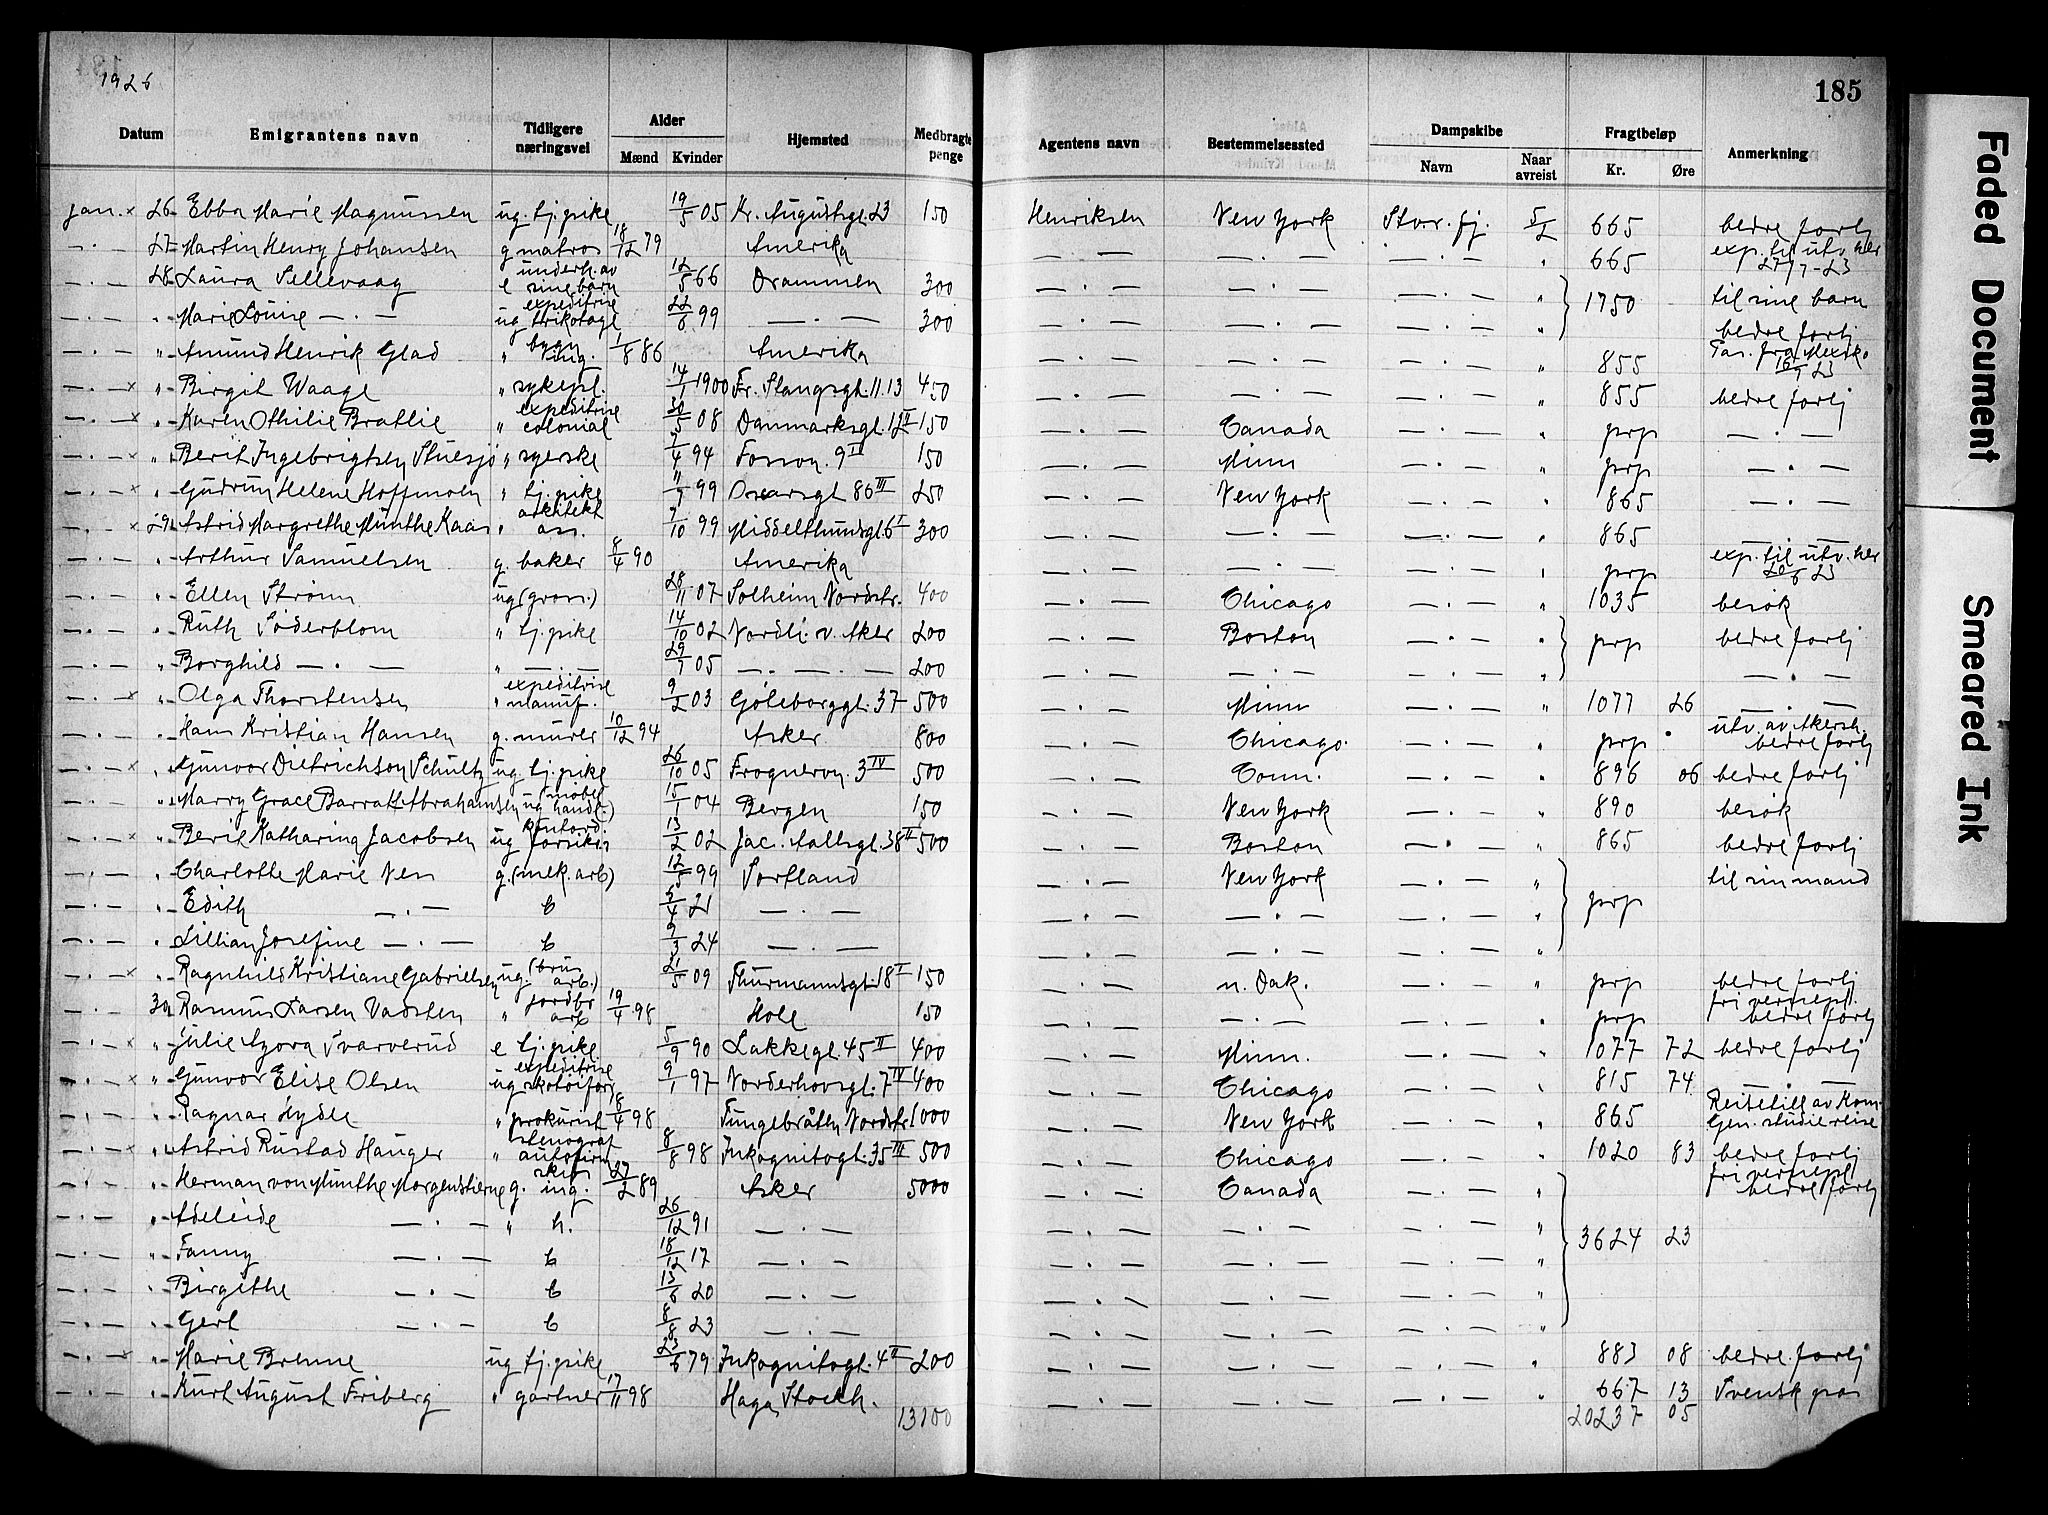 1926
185
Datum Emigrantens navn Tidligere næringsvei Alder Mænd Kvinder Hjemsted Medbragte penge Agentens navn Bestemmelsessted Dampskibe Navn Naar avreist Fragtbeløp Kr. Øre Anmerkning
Jan. × 26 Ebba Marie Magnussen ug. tj. pike 19/5 05 Kr. Augustsgt. 23 150 Henriksen New York Stv. r. fj. 5/2 665 bedre fortj
— · — 27 Martin Henry Johansen g matros 18/12 79 Amerika — · — — · — — · — " 665 exp. til utv. her 27/7-23
— · — 28 Laura Sellevaag e underh. av sine barn 12/5 66 Drammen 300 — · — — · — — · — " 1750 til sine barn
— · — " Marie Louise — · — ug expeditrise trikotage 22/6 99 — · — 300 — · — — · — — · — " bedre fortj
— · — " Amund Henrik Glad " bygn ing. 1/8 86 Amerika — · — — · — — · — " 855 Pas. fra Mexiko 16/1 23
— · — × " Birgit Waage " sykepl. 14/1 1900 Fr. Stangsgt. 11.13 450 — · — — · — — · — " 855 bedre fortj
— · — × " Karen Othilie Bratlie " expeditrise colonial 30/5 08 Danmarksgt. 12 II 150 — · — Canada — · — " prp — · —
— · — × " Berit Ingebrigtsen Stuesjø " syerske 7/4 94 Fossvn. 9 IV 150 — · — Minn — · — " prp — · —
— · — × " Gudrun Helene Hoffmoen " tj. pike 11/9 99 Oscarsgt 86 III 250 — · — New York — · — " 865 — · —
— · — × 29 Astrid Margrethe Munthe Kaas " arkitekt ass. 7/10 99 Middelthunsgt. 6 I 300 — · — — · — — · — " 865 — · —
— · — " Arthur Samuelsen g. baker 8/4 90 Amerika — · — — · — — · — " prp exp. til utv. her 20/6 23
— · — " Ellen Strøm ug (gross.) 28/11 07 Solheim Nordstr. 400 — · — Chicago — · — " 1035 besøk
— · — " Ruth Söderblom " tj. pike 14/10 02 Nordli v. Aker 200 — · — Boston — · — " prp bedre fortj
— · — " Borghild — · — " — · — 29/7 05 — · — 200 — · — — · — — · — " — · —
— · — × " Olga Thorstensen " expeditrise manuf. 9/2 03 Gøteborggt. 37 500 — · — Minn — · — " 1077 26 — · —
— · — " Hans Kristian Hansen g. murer 10/12 94 Asker 800 — · — Chicago — · — " prp utv. av Akersh. bedre fortj
— · — × " Gunvor Dietrichson Schultz ug. tj. pike 26/10 05 Frognervn. 3 IV 500 — · — Conn. — · — " 896 06 bedre fortj
— · — " Marry Grace Barratt Abrahamsen ug (møbel handl.) 15/1 04 Bergen 150 — · — New York — · — " 890 besøk
— · — × " Berit Katharina Jacobsen ug kontord. forsikr. 13/2 02 Jac. Aallsgt. 38 II 500 — · — Boston — · — " 865 bedre fortj
— · — " Charlotte Marie Nes g. (mek. arb) 12/5 99 Sortland — · — New York — · — " prp til sin mand
— · — " Edith — · — b 5/4 21 — · — — · — — · — — · — "
— · — " Lillian Josefine — · — b 9/3 24 — · — — · — — · — — · — "
— · — × " Ragnhild Kristiane Gabrielsen ug. (brus arb.) 21/5 09 Thurmannsgt. 18 I 150 — · — n. Dak. — · — " prp bedre fortj
— · — 30 Rasmus Larsen Vadsten " jordbr arb 19/4 98 Hole 150 — · — — · — — · — " prp fri vernepl. bedre fortj
— · — × " Julie Azora Svarverud e tj. pike 5/9 90 Lakkegt. 45 II 400 — · — Minn. — · — " 1077 72 bedre fortj
— · — × " Gunvor Elise Olsen ug expeditrise skotøiforr 9/1 97 Norderhovsgt. 7 IV 400 — · — Chicago — · — " 815 74 — · —
— · — " Ragnar Hyde " prokurist 8/4 98 Tungebråten Nordstr. 1000 — · — New York — · — " 865 Reisetill av Kom. Gen. studiereise
— · — × " Astrid Rustad Hauger " stenograf autofirm 8/8 98 Inkognitogt. 35 III 500 — · — Chicago — · — " 1020 83 bedre fortj
— · — " Herman von Munthe Morgenstierne g. skips ing. 27/2 89 Asker 5000 — · — Canada — · — " fri vernepl bedre fortj
— · — " Adeleide — · — " h. 26/12 91 — · — — · — — · — — · — " 3624 23
— · — " Fanny — · — b 18/12 17 — · — — · — — · — — · — "
— · — " Birgithe — · — b 13/6 20 — · — — · — — · — — · — "
— · — " Gert — · — b 8/8 23 — · — — · — — · — — · — "
— · — × " Marie Brenne ug tj. pike 23/6 79 Inkognitogt. 4 II 200 — · — — · — — · — " 883 08 bedre fortj
— · — " Kurt August Friberg " gartner 17/11 98 Haga Stockh. — · — — · — — · — " 667 13 Svensk pas
13100 20237 05
Faded Document
Smeared Ink